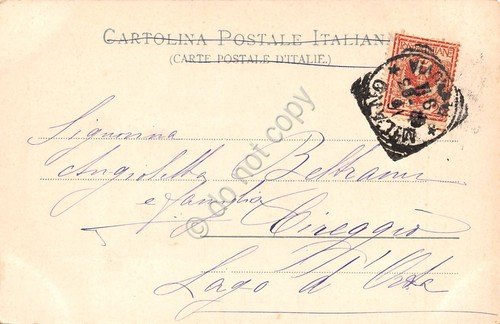 CARTOLINA POSTALE ITALIANA
(CARTE POSTALE D'ITALIE.)
MILANO
Signorina
Angioletta Beltrami
e famiglia
Cireggio
Lago d'Orta
do not copy